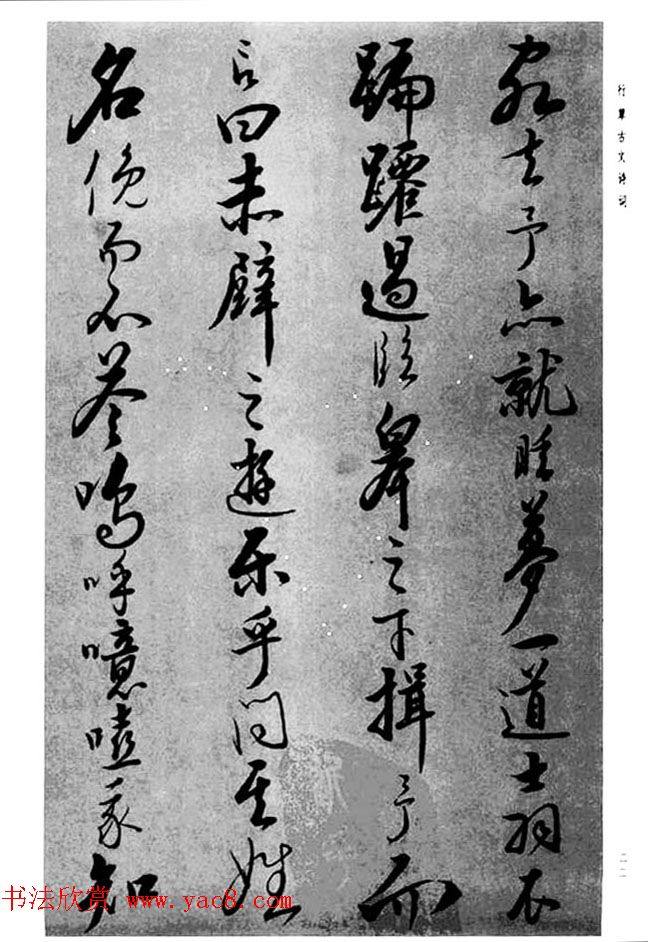 客去予亦就睡夢一道士羽衣
蹁躚過臨皋之下揖予而
言曰赤壁之遊樂乎問其姓
名俛而不答嗚呼噫嘻我知
行草古文诗词
二二
书法欣赏 www.yac8.com